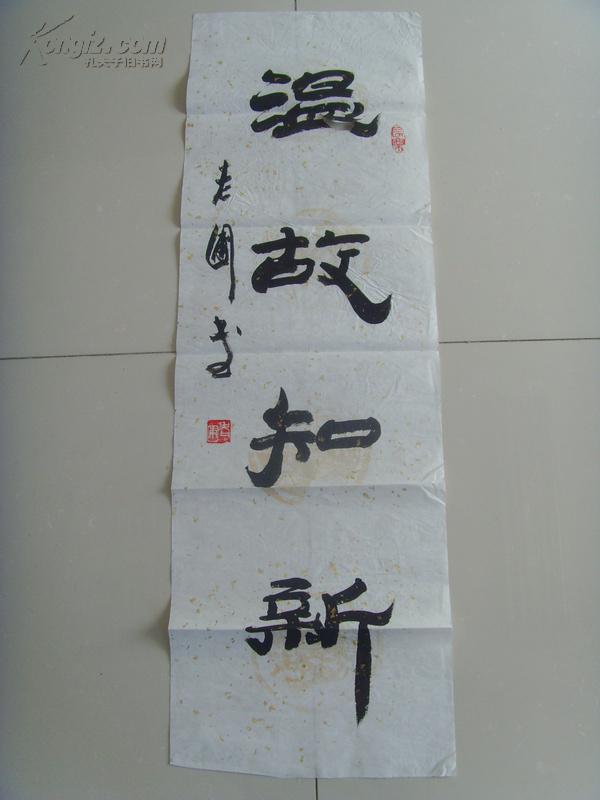 温故知新
老圃书
Kongfz.com
孔夫子旧书网